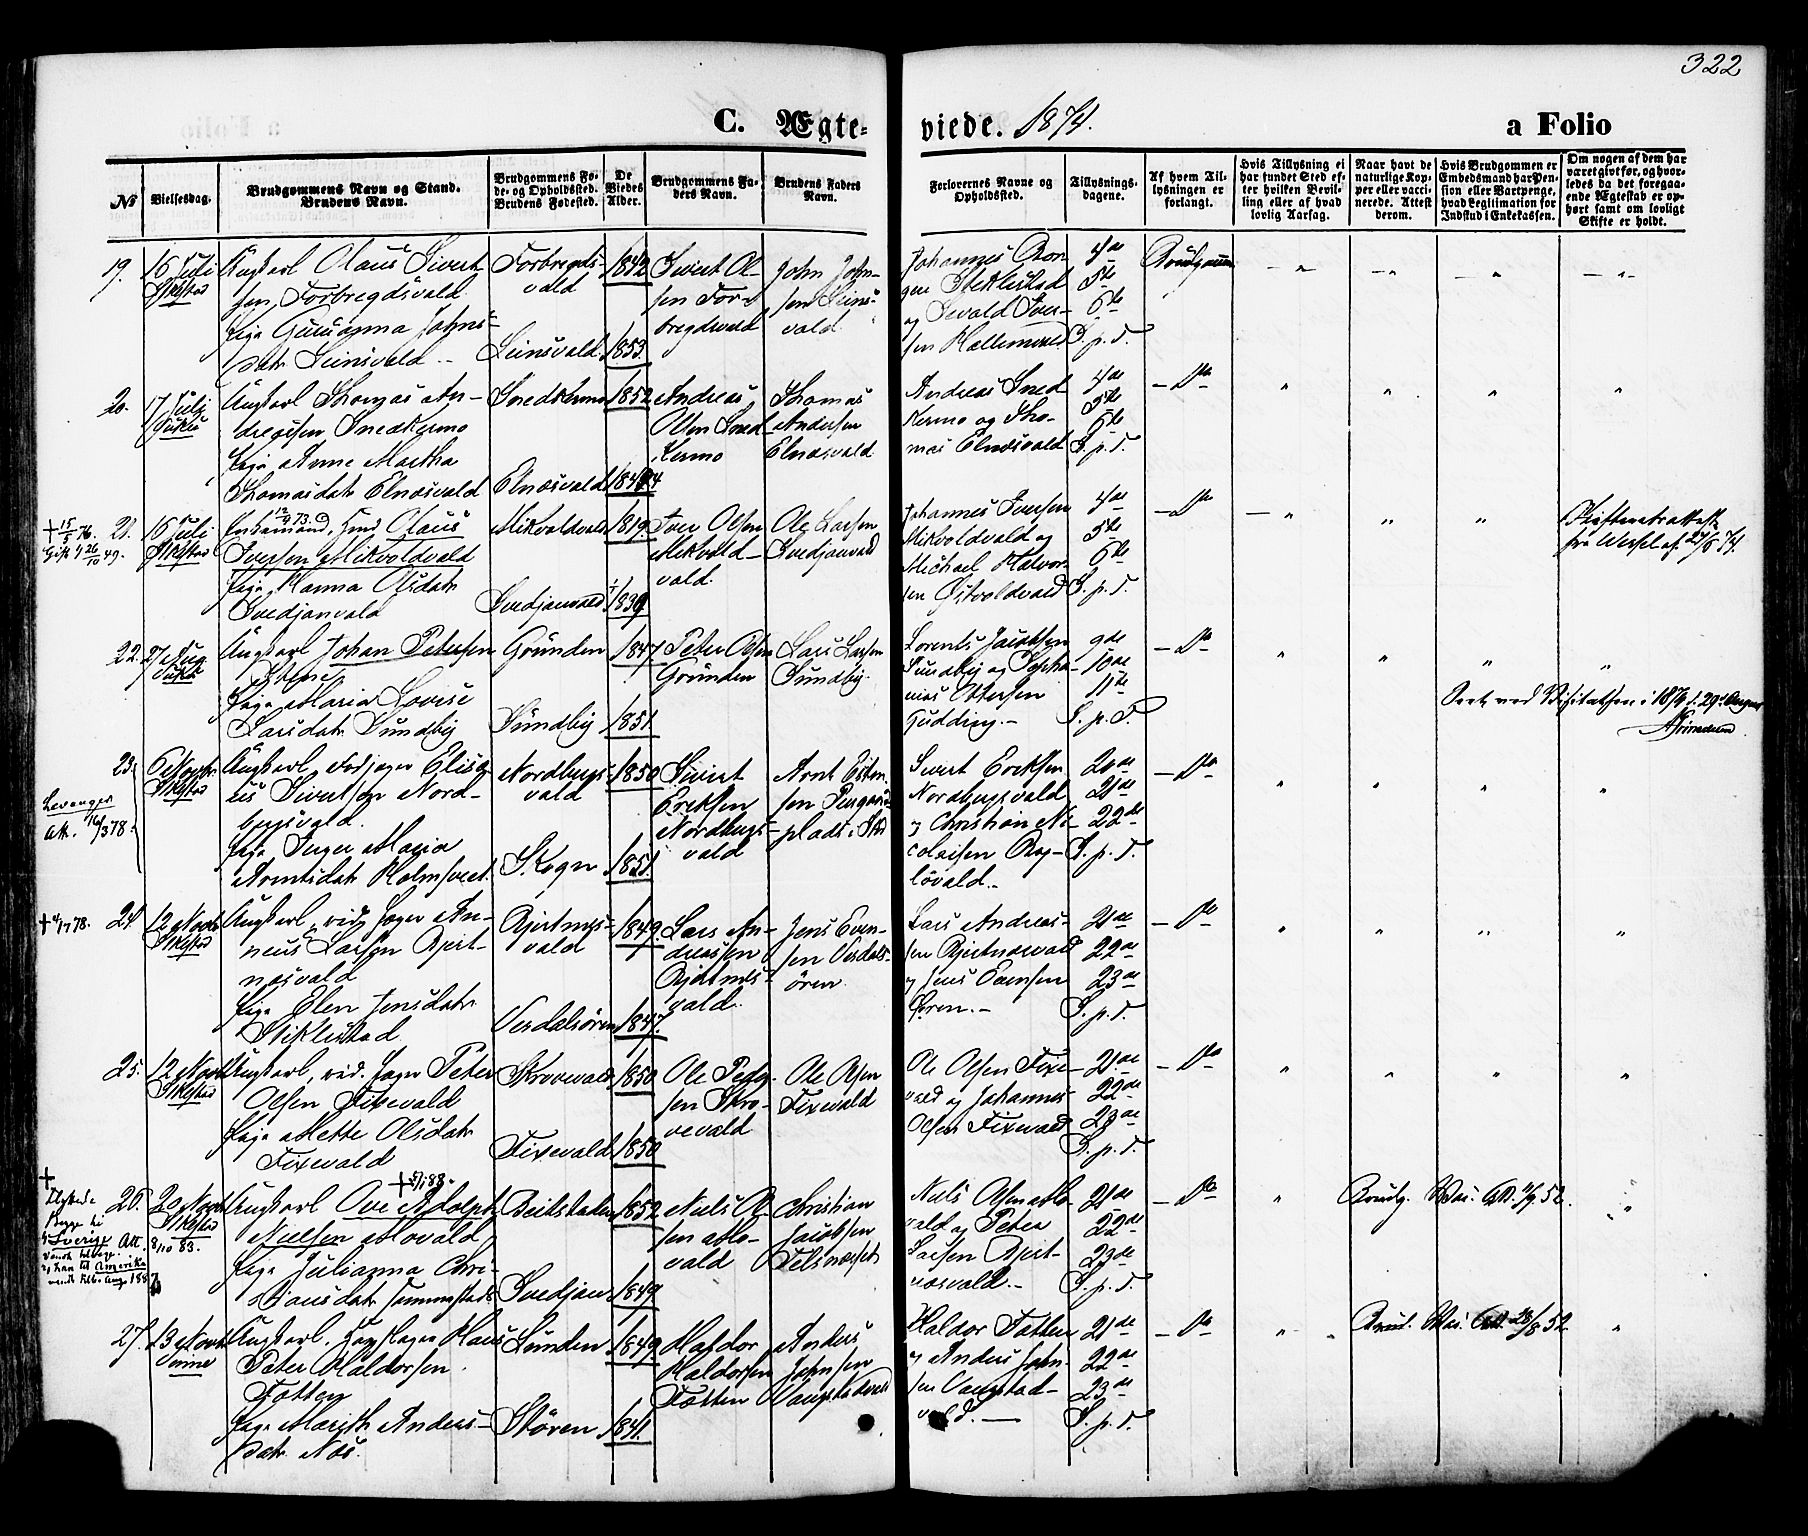 322
C. Ægteviede. 1874.
a Folio
No
Vielsesdag.
Brudgommens Navn og Stand.
Brudens Navn.
Brudgommens Føde- og Opholdssted.
Brudens Fødested.
De Viedes Alder.
Brudgommens Faders Navn.
Brudens Faders Navn.
Forlorernes Navne og Opholdssted.
Tillysningsdagene.
Af hvem Tillysningen er forlangt.
Hvis Tillysning ei har fundet Sted efter hvilken Bevilling eller af hvad lovlig Aarsag.
Naar havt de naturlige Kopper eller vaccinerede. Attest derom.
Hvis Brudgommen er Embedsmand har Pension eller Vartpenge, hvad Legitimation for Indskud i Enkekassen.
Om nogen af dem har været givt før, og hvorledes da det foregaaende Ægteskab er ophørt samt om lovligt Skifte er holdt.
19. 16 Juli
Stkstad
Ungkarl Olaus Sivert
sen Forbregdsvald
Pige Gurianna Johns
datr Leinsvald
Forbregds
vald
Leinsvald
1842
1853
Sivert Ol
sen For
bregdsvald
John John
sen Leins
vald
Johannes Aron
gen Stiklestad
og Sevald Iver
sen Hallemsvald
4de
5te
6te
S. p. T.
Brudgommen
20. 17 Juli
Vukku
Ungkarl Thomas An
dreasen Snedkermo
Pige Anne Martha
Thomasdatr Elnæsvald
Snedkermo
Elnæsvald
1852
Andreas
Olsen Sned
kermo
Thomas
Andersen
Elnæsvald
Andreas Sned
kermo og Tho
mas Elnæsvald
4de
5te
6te
S. p. T.
Do
† 15/5 76.
Gift 1 26/10 49.
21. 16 Juli
Stkstad
Enkemand, Hmd Olaus
Iverson Mikvoldvald
Pige Hanna Olsdatr
Svedjanvald
Mikvoldvald
Svedjanvald
1819
1839
Iver Olsen
Mikvold
vald.
Ole Larsen
Svedjanvald
Johannes Iversen
Mikvoldvald og
Michael Halvor
sen Østvoldvald
4de
5te
6te
S. p. T.
Do
Skifteretsattest
fra Wessel af 27/6 74.
22. 27 Aug
Vukku
Ungkarl Johan Petersen
Stene
Pige Maria Lovise
Larsdatr Sundby
Grunden
Sundby
1847
1851
Peter Olsen
Grunden
Lars Larsen
Sundby
Lorents Jacobsen
Sundby og Sepha
nias Ottersen
Gudding.
9de
10de
11te
S. p. T.
Do
Seet ved Visitatsen i 1874 d. 29de August
Grimelund
Levanger
Att. 16/3 78.
23. 6 Novbr
Stkstad
Ungkarl Elise
us Sivertsen Nord
bergsvald.
Pige Inger Maria
Arntsdatr Holmsveet
Nordbergs
vald
Skogn
1850
1851
Sivert
Eriksen
Nordbergs
vald
Arnt Esten
sen
plads i Skd
Sivert Eriksen
Nordbergsvald
og Christian Ni
colaisen
lövald.
20de
21de
22de
S. p. T.
Do
24. 12 Novbr
Stkstad
Ungkarl, vid. Jæger An
neus Larsen Bjert
næsvald
Pige Elen Jensdatr
Stiklestad
Bjertnæs
vald
Verdalsören
1849
1847
Lars An
dreassen
Bjertnæs
vald.
Jens Even
sen Verdals
ören.
Lars Andreas
sen Bjertnæsvald
og Jens Evensen
Ören.
21de
22de
23de
S. p. T.
Do
25. 12 Novbr
Stkstad
Ungkarl, vid. Jæger Peter
Olsen Fixevald
Pige Mette Olsdatr
Fixevald
Skrovevald
Fixevald
1850
1850
Ole Peder
sen Skro
vevald
Ole Olsen
Fixevald
Ole Olsen Fixe
vald og Johannes
Olsen Fixevald
21de
22de
23de
S. p. T.
Do
†
Sverige Att. 8/10 83.
og han til Amerika
26. 20 Novbr
Stkstad
Ungkarl Ove Adolph
Nielsen Movald
Pige Julianna Chri
stiansdatr
Beitstaden
Svedjan
1852
1849
Niels Ol
sen Mo
vald
Christian
Jacobsen
Niels Olsen Mo
vald og Peter
Larsen Bjert
næsvald.
21de
22de
23de
S. p. T.
Do
27. 13 Novbr
Vinne
Ungkarl, Hans
Peter Haldorsen
Fætten
Pige Marith Anders
datr Næs.
Lunden
Stören
1849
1841
Haldor
Haldorsen
Fætten
Anders
Johnsen
Haldor Fætten
og Anders John
sen Vangstad
vald.
21de
22de
23de
S. p. T.
Do